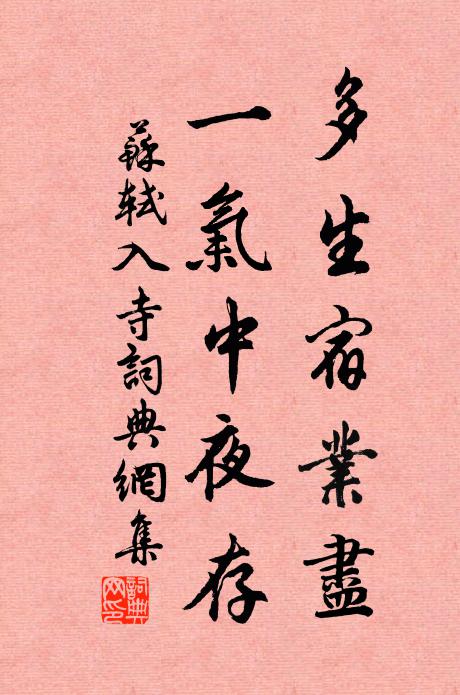 多生宿業盡
一氣中夜存
蘇軾入寺詞典網集
詞典網印